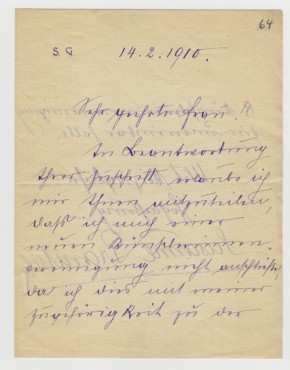 64
S. G. 14.2.1910.
Sehr geehrte Frau!
In Beantwortung
Ihrer Zuschrift erlaube ich
mir Ihnen mitzuteilen,
daß ich mich einer
neuen
vereinigung nicht anschließe
da ich dies mit meiner
Zugehörigkeit zu der